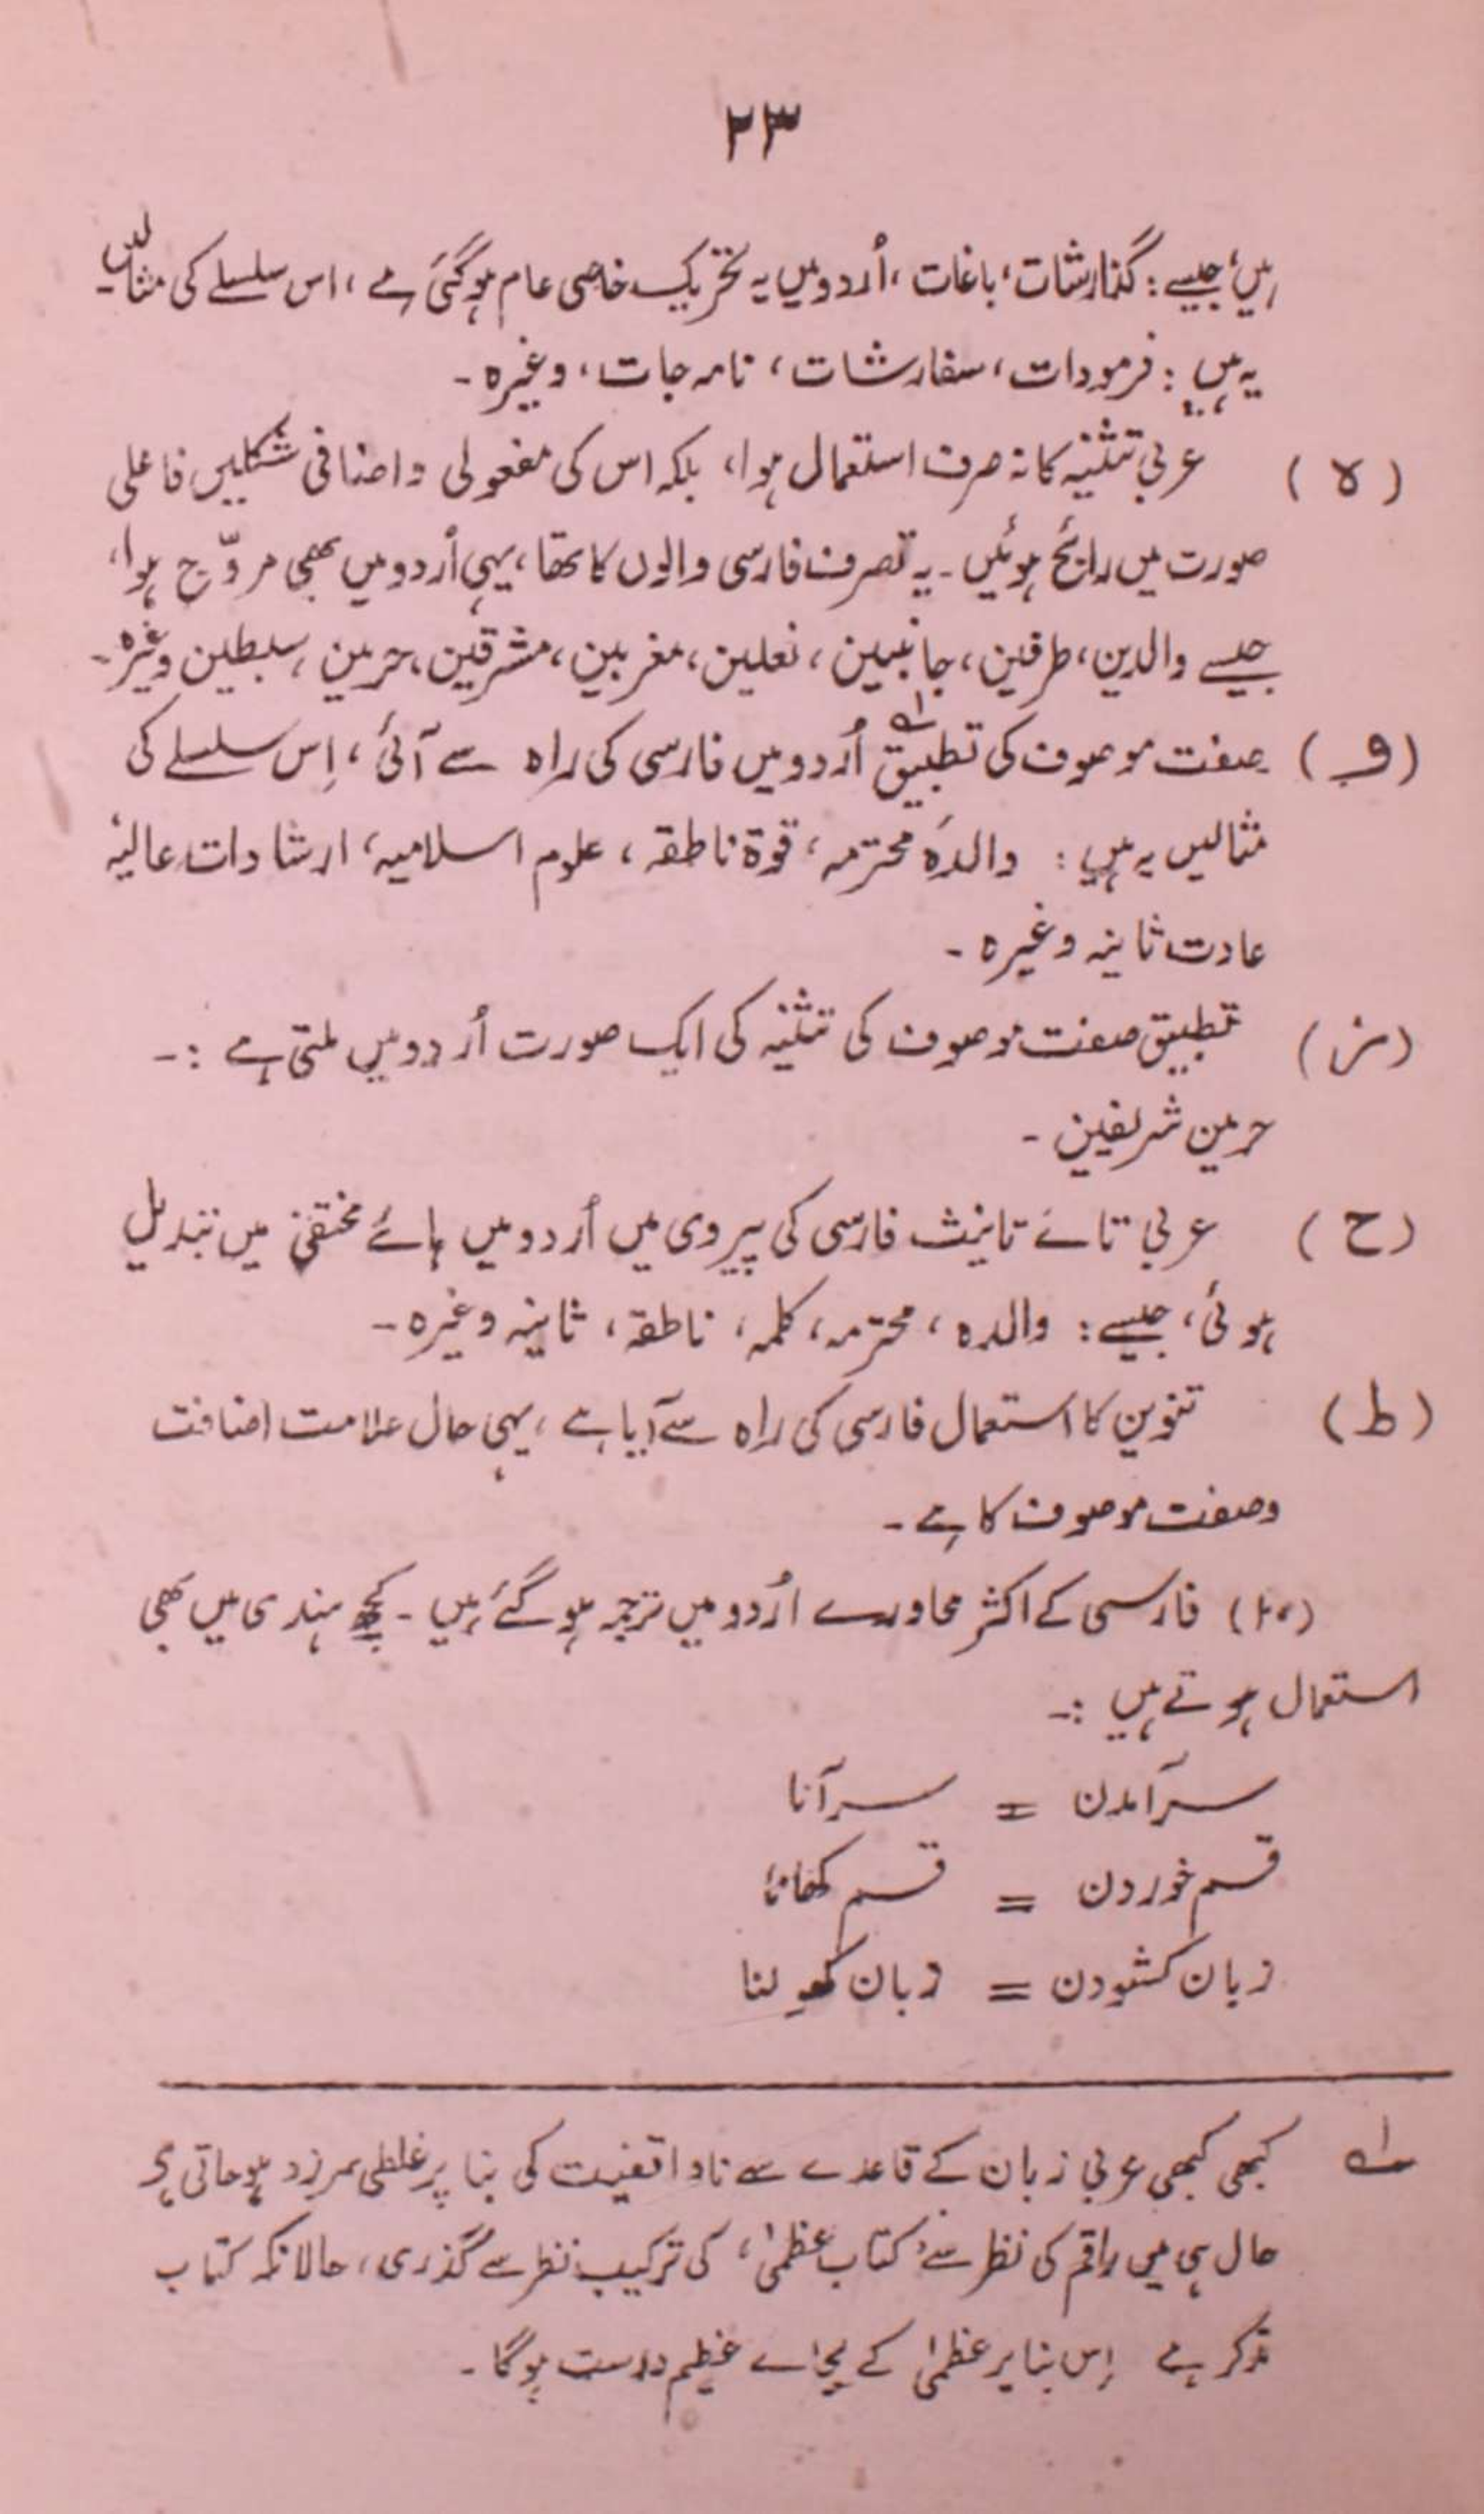 ۲۳
ہیں، جیسے: گذارشات، باغات، اُردو میں یہ تحریک خاصی عام ہوگئی ہے، اس سلسلے کی مثالیں
یہ ہیں: فرمودات، سفارشات، نامہ جات، وغیرہ۔
(ہ) عربی تثنیہ کا نہ صرف استعمال ہوا، بلکہ اس کی مفعولی و اضافی شکلیں فاعلی
صورت میں رائج ہوئیں۔ یہ تصرف فارسی والوں کا تھا، یہی اُردو میں بھی مروّج ہوا،
جیسے والدین، طرفین، جانبین، نعلین، مغربین، مشرقین، حرمین، سبطین وغیرہ۔
(و) صفت موصوف کی تطبیق۱؎ اُردو میں فارسی کی راہ سے آئی، اِس سلسلے کی
مثالیں یہ ہیں: والدۂ محترمہ، قوۃ ناطقہ، علوم اسلامیہ، ارشادات عالیہ
عادت ثانیہ وغیرہ۔
(ز) تطبیق صفت موصوف کی تثنیہ کی ایک صورت اُردو میں ملتی ہے :۔
حرمین شریفین۔
(ح) عربی تائے تانیث فارسی کی پیروی میں اُردو میں ہائے مختفی میں تبدیل
ہوئی، جیسے: والدہ، محترمہ، کلمہ، ناطقہ، ثانیہ وغیرہ۔
(ط) تنوین کا استعمال فارسی کی راہ سے آیا ہے، یہی حال علامت اضافت
و صفت موصوف کا ہے۔
فارسی کے اکثر محاورے اُردو میں ترجمہ ہوگئے ہیں۔ کچھ ہندی میں بھی
استعمال ہوتے ہیں :۔
سرآمدن = سرآنا
قسم خوردن = قسم کھانا
زبان کشودن = زبان کھولنا
۱؎ کبھی کبھی عربی زبان کے قاعدے سے ناواقفیت کی بنا پر غلطی سرزد ہوجاتی ہے
حال ہی میں راقم کی نظر سے ’کتاب عظمیٰ‘ کی ترکیب نظر سے گذری، حالانکہ کتاب
مذکر ہے اِس بنا پر عظمیٰ کے بجائے عظیم درست ہوگا۔